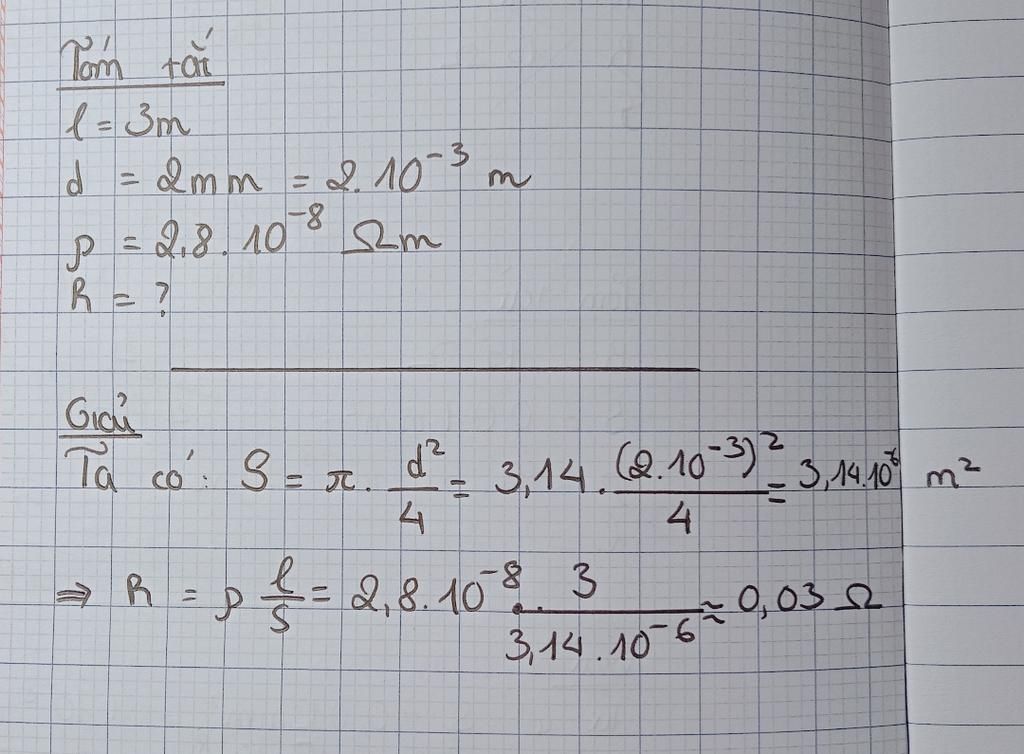 Tóm tắt
l = 3m
d = 2mm = 2.10⁻³ m
ρ = 2,8.10⁻⁸ Ωm
R = ?
Giải
Ta có: S = π. d²/4 = 3,14. (2.10⁻³)²/4 = 3,14.10⁻⁶ m²
⇒ R = ρ l/S = 2,8.10⁻⁸. 3/3,14.10⁻⁶ ≈ 0,03 Ω